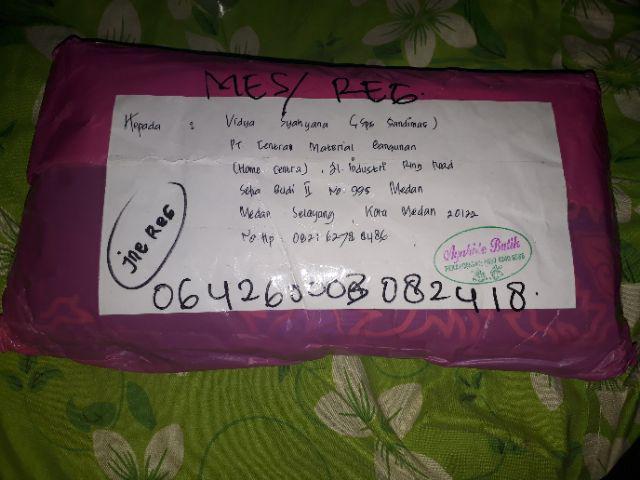 MES/ REG.
Kepada : Vidya Syahyana (Sps Sandimas)
PT Central Material Bangunan
(Home Centra), Jl. industri Ring Road
Setia Budi II No. 99S Medan
Medan Selayang, Kota Medan 20122
No Hp : 0821 6278 8486
jne REG
Ayahide Butik
064260008082418.